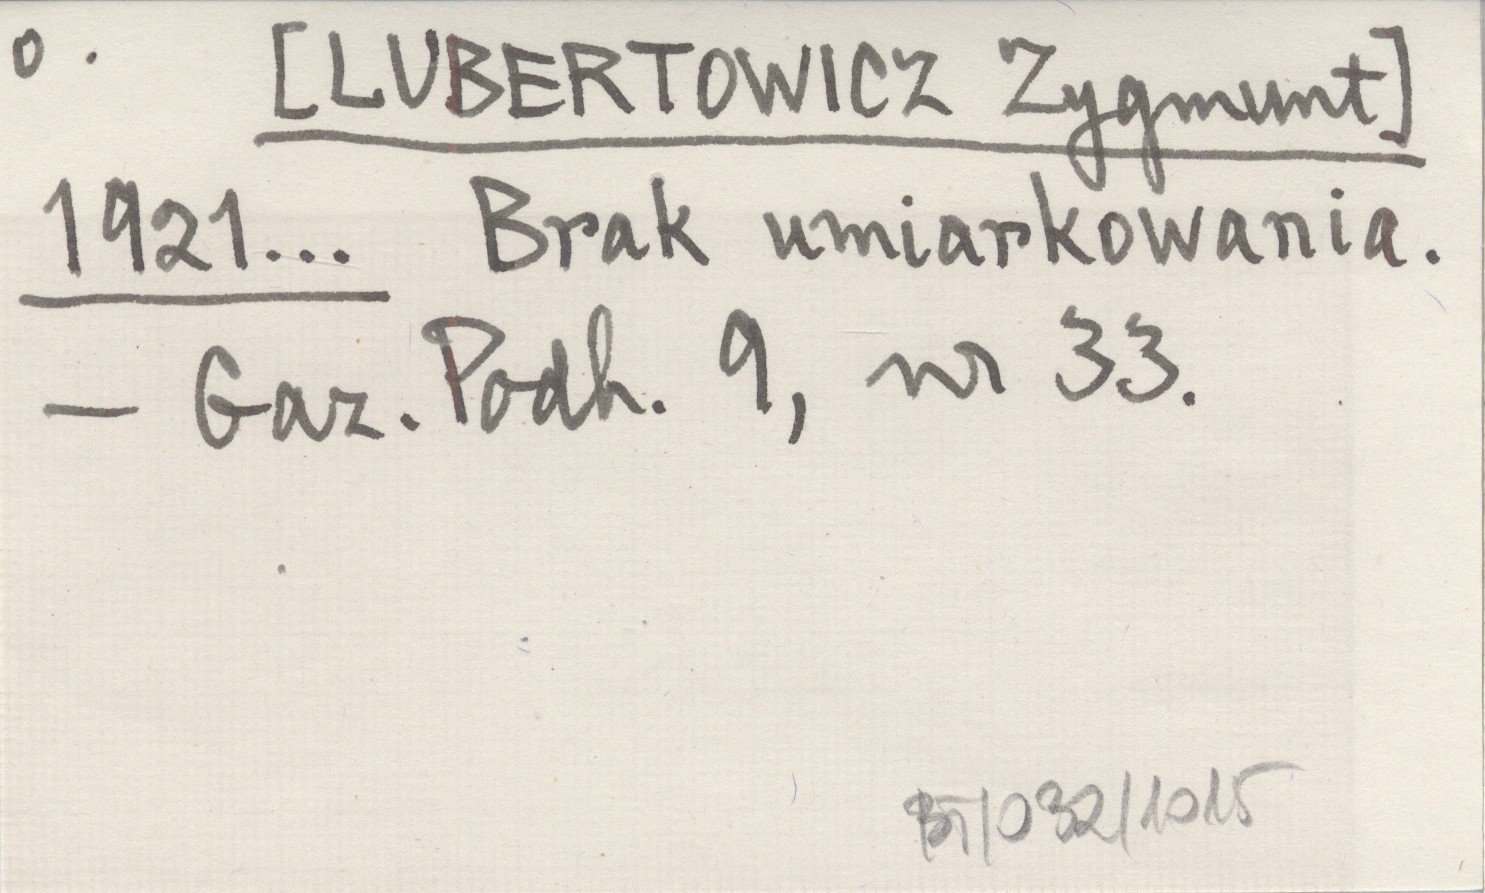 o. [LUBERTOWICZ Zygmunt]
1921... Brak umiarkowania.
— Gaz. Podh. 9, nr 33.
BT/032/1015